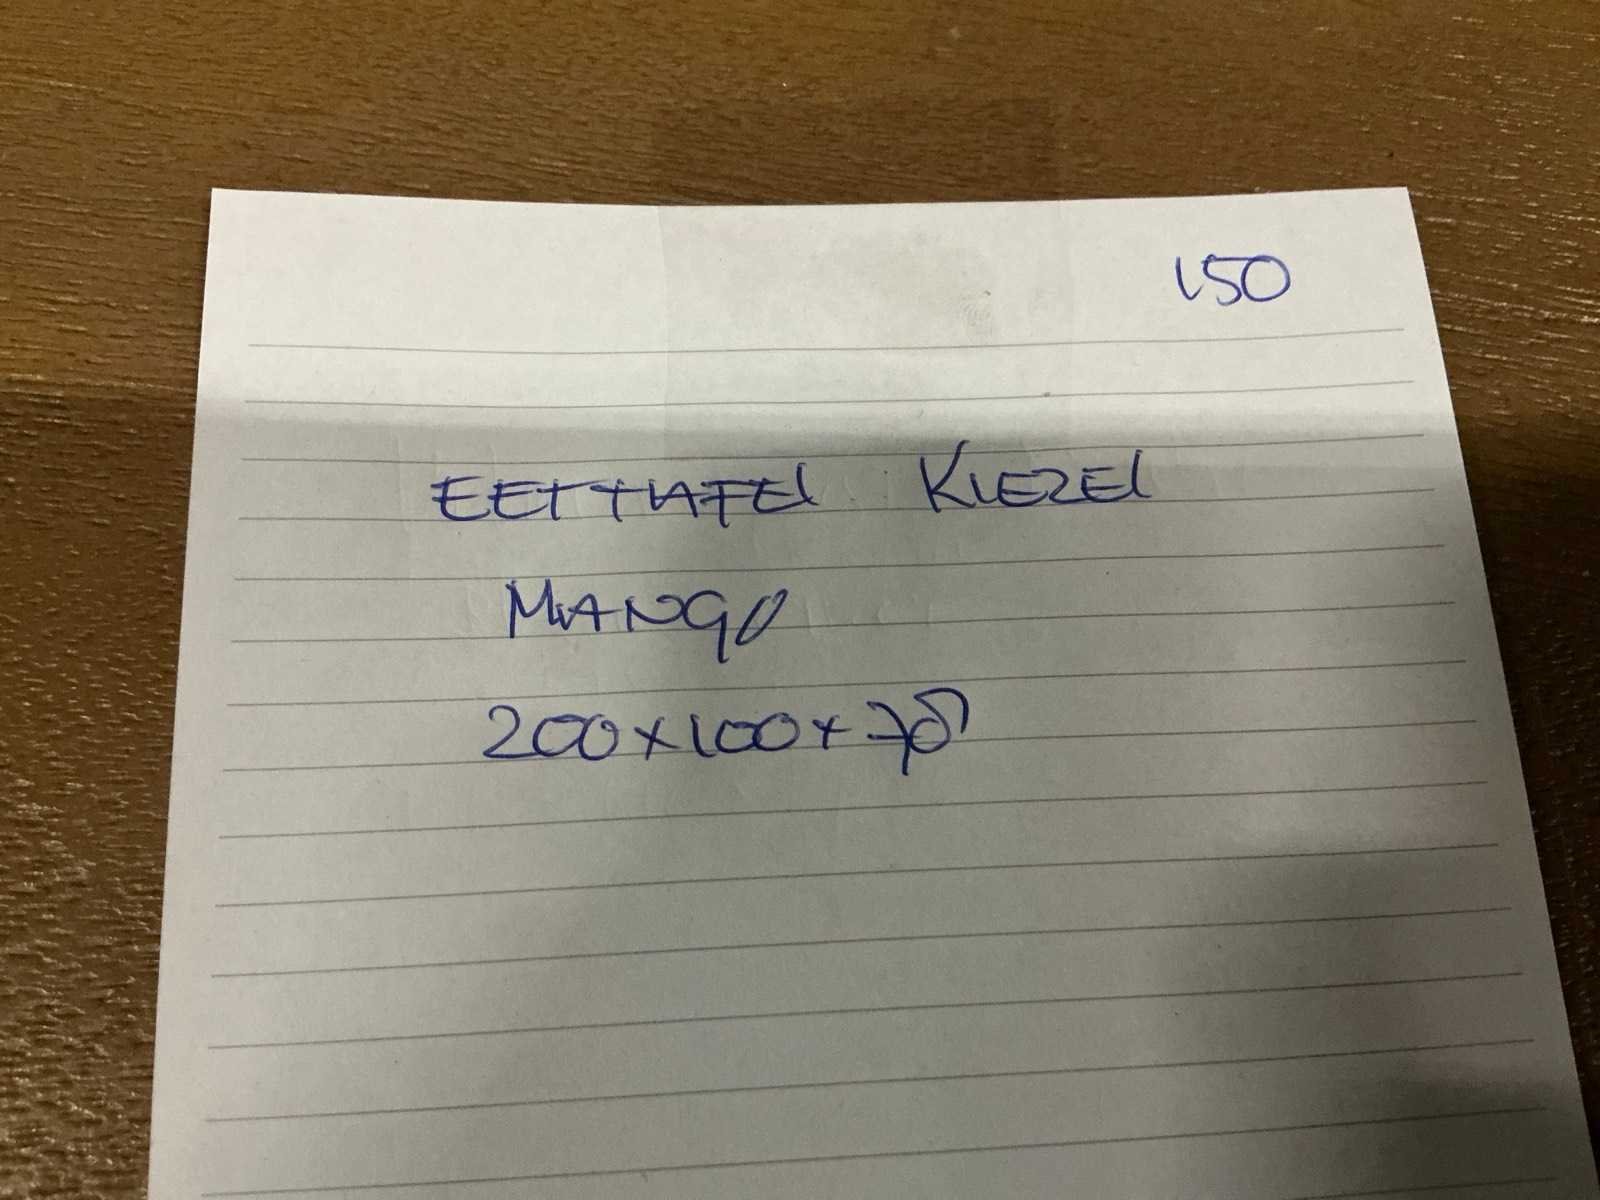 150
EETTAFEl KIEZEl
MANGO
200x100x78